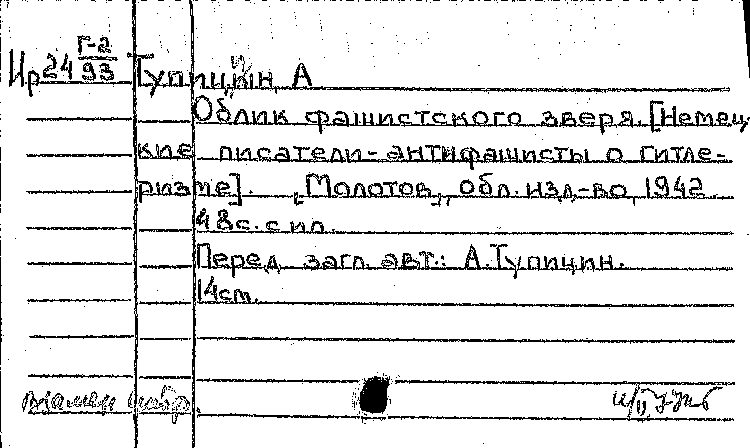 Ир 24 Г-2/93 Тупицин, А
Облик фашистского зверя. [Немец-
кие писатели-антифашисты о гитле-
ризме]. „Молотов„, обл. изд-во, 1942.
48с. с ил.
Перед загл. авт.: А. Тупицин.
14см.
взамен